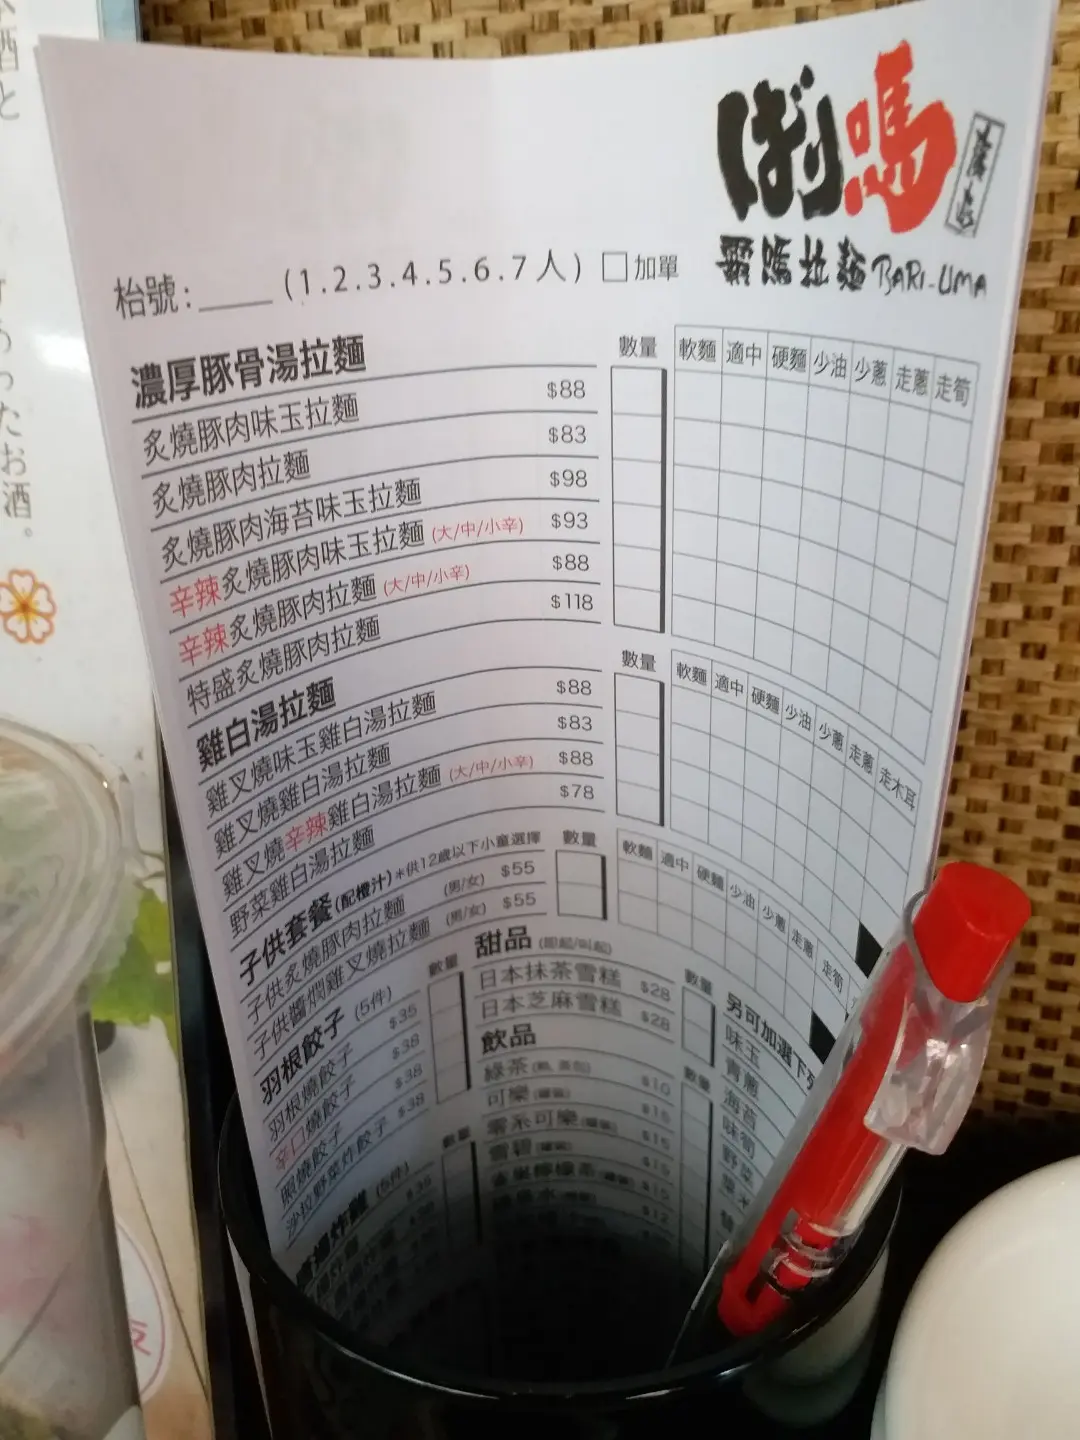 ばり嗎
霸嗎拉麵 BARI-UMA
枱號:____ (1.2.3.4.5.6.7人) □加單
濃厚豚骨湯拉麵 數量 軟麵 適中 硬麵 少油 少蔥 走蔥 走筍
炙燒豚肉味玉拉麵 $88
炙燒豚肉拉麵 $83
炙燒豚肉海苔味玉拉麵 $98
辛辣炙燒豚肉味玉拉麵 (大/中/小辛) $93
辛辣炙燒豚肉拉麵 (大/中/小辛) $88
特盛炙燒豚肉拉麵 $118
雞白湯拉麵 數量 軟麵 適中 硬麵 少油 少蔥 走蔥 走木耳
雞叉燒味玉雞白湯拉麵 $88
雞叉燒雞白湯拉麵 $83
雞叉燒辛辣雞白湯拉麵 (大/中/小辛) $88
野菜雞白湯拉麵 $78
子供套餐(配橙汁) *供12歲以下小童選擇 數量 軟麵 適中 硬麵 少油 少蔥 走蔥 走筍
子供炙燒豚肉拉麵 (男/女) $55
子供醬燜雞叉燒拉麵 (男/女) $55
羽根餃子 (5件) 數量
羽根燒餃子 $35
辛口燒餃子 $38
照燒餃子 $38
沙拉野菜炸餃子 $38
炸雞 (5件) 數量
甜品 (即起/叫起) 數量
日本抹茶雪糕 $28
日本芝麻雪糕 $28
飲品 數量
綠茶 $10
可樂 $15
零系可樂 $15
雪碧 $15
另可加選下列
味玉
青蔥
海苔
味筍
野菜
木酒と
たお酒。